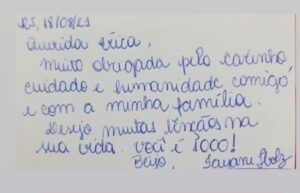 RS, 18/08/21
Querida Érica,
Muito obrigada pelo carinho,
cuidado e humanidade comigo
e com a minha família.
Desejo muitas bênçãos na
sua vida. Você é 1000!
Beijo,